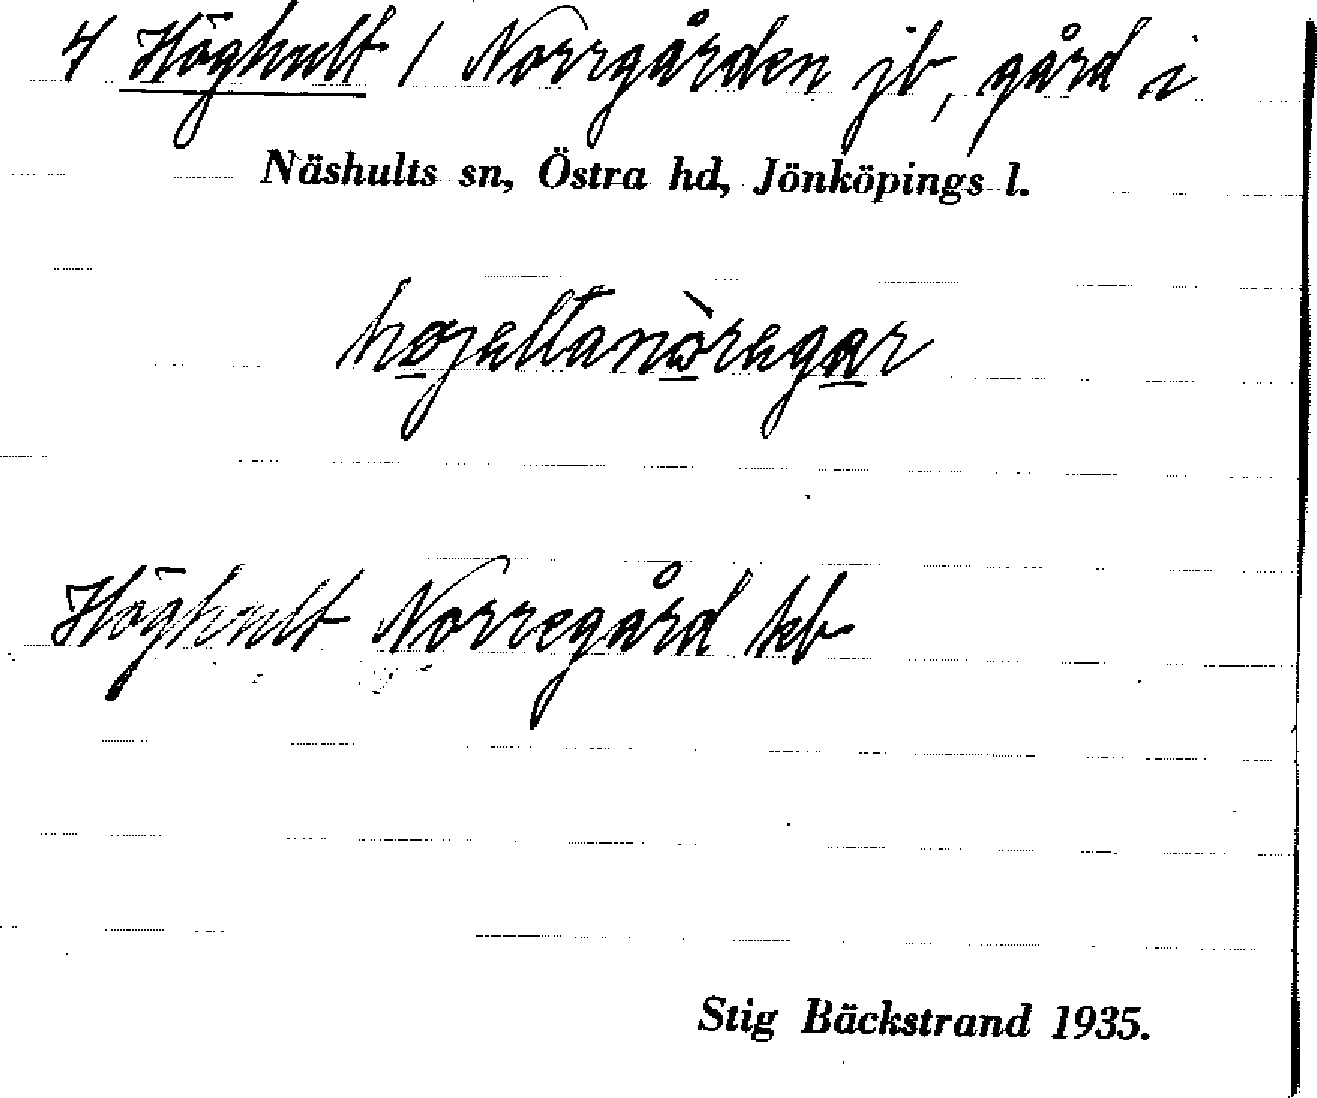 4 Höghult / Norrgården jb, gård i
Näshults sn, Östra hd, Jönköpings l.
Höghult Norregård kb
Stig Bäckstrand 1935.